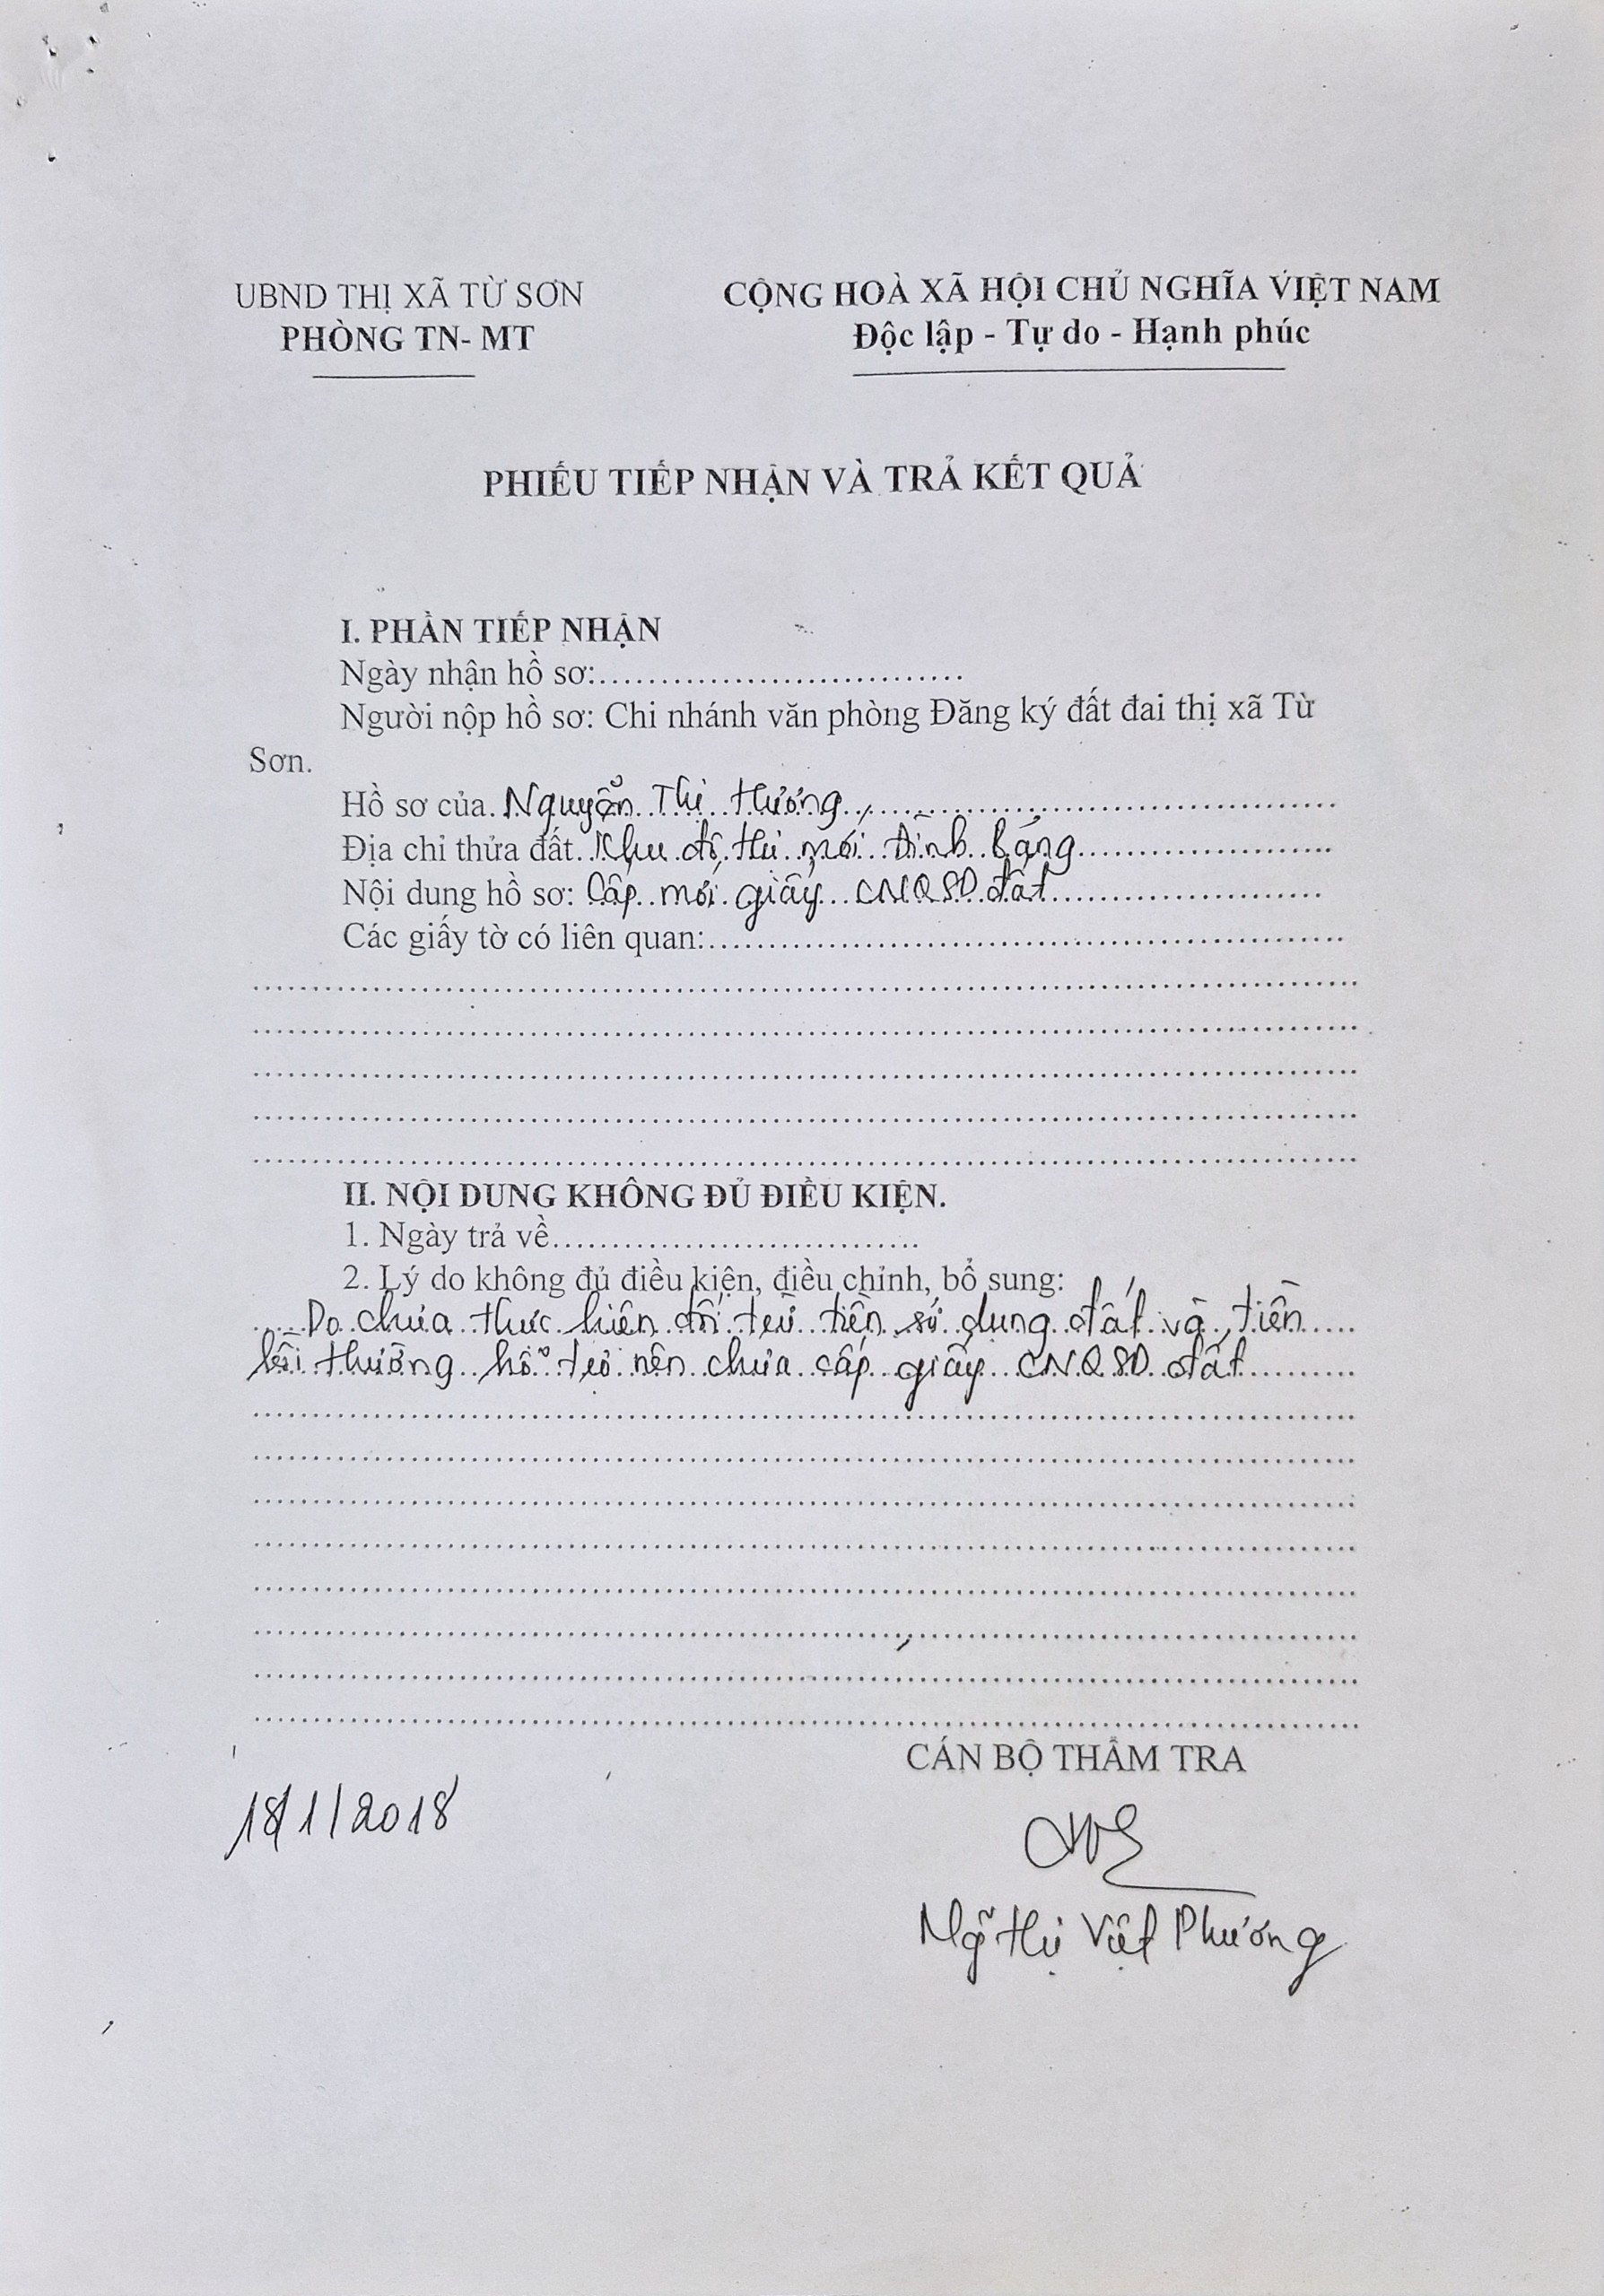 UBND THỊ XÃ TỪ SƠN
PHÒNG TN- MT
CỘNG HOÀ XÃ HỘI CHỦ NGHĨA VIỆT NAM
Độc lập - Tự do - Hạnh phúc
PHIẾU TIẾP NHẬN VÀ TRẢ KẾT QUẢ
I. PHẦN TIẾP NHẬN
Ngày nhận hồ sơ:..............................
Người nộp hồ sơ: Chi nhánh văn phòng Đăng ký đất đai thị xã Từ
Sơn.
Hồ sơ của. Nguyễn Thị Hương
Địa chỉ thửa đất. Khu đô thị mới Đình bảng
Nội dung hồ sơ: Cấp mới giấy CNQSD đất
Các giấy tờ có liên quan:
II. NỘI DUNG KHÔNG ĐỦ ĐIỀU KIỆN.
1. Ngày trả về..............................
2. Lý do không đủ điều kiện, điều chỉnh, bổ sung:
Do chưa thực hiện đối trừ tiền sử dụng đất và tiền
bồi thường hỗ trợ nên chưa cấp giấy CNQSD đất
CÁN BỘ THẨM TRA
18/1/2018
Ng~ Thị Việt Phương